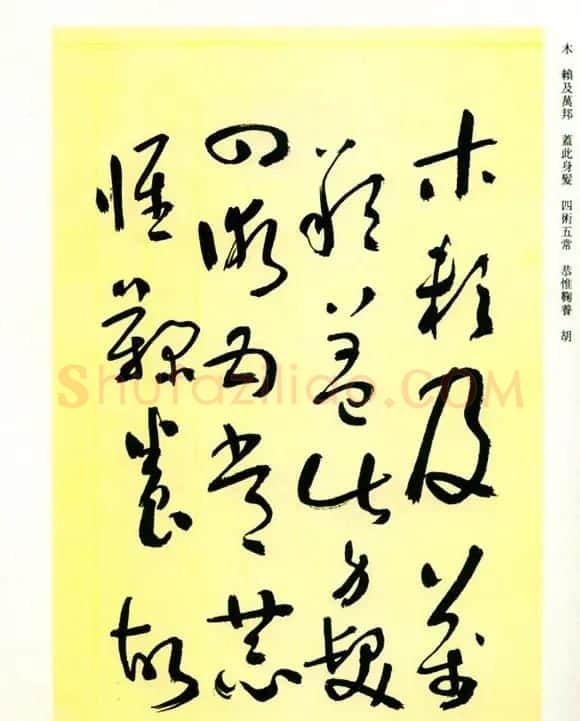 木 賴及萬邦 蓋此身髮 四術五常 恭惟鞠養 胡
木賴及萬
邦蓋此身髮
四術五常恭
惟鞠養胡
Shufaziliao.COM